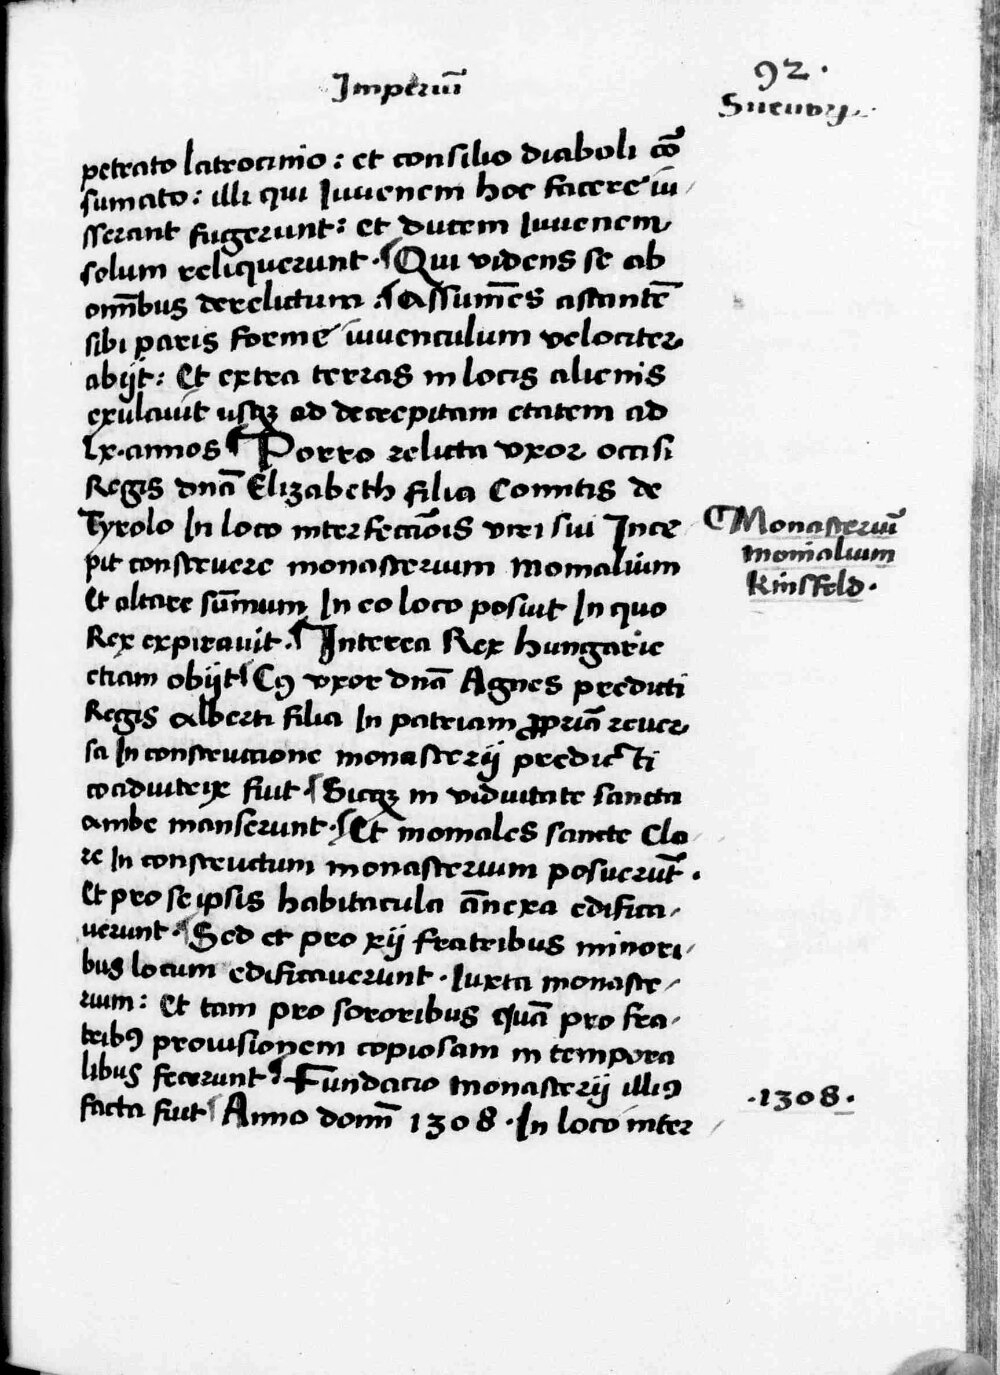 Imperiū
92.
Sueuorꝝ.
petrato latrocinio: et consilio diaboli cō
sumato: illi qui Iuvenem hoc facere iu/
sserant fugerunt: et ducem Iuvenem
solum reliquerunt. ¶ Qui videns se ab
om̄ibus derelictum: ¶ Assum̄es astantē
sibi paris forme iuvenculum velociter
abijt: Et extra terras in locis alienis
exulavit usqꝫ ad decrepitam etatem ad
Lx. annos ¶ Porro relicta vxor occisi
Regis dnā Elizabeth filia Comitis de
Tyrolo In loco interfecciōis viri sui Ince
pit construere monasterium Monialium
Et altare sūmum In eo loco posuit In quo
Rex expiravit. ¶ Interea Rex hungarie
etiam obijt ¶ Cꝰ vxor dnā Agnes predicti
Regis Alberti filia In patriam ꝓpriā rever
sa In construccione monasterij predicti
coadiutrix fuit ¶ Sicqꝫ in viduitate sancta
ambe manserunt. ¶ Et moniales sancte Cla
re In constructum monasterium posuerūt.
Et pro se ipsis habitacula ānexa edifica/
verunt. ¶ Sed et pro xij fratribus minori/
bus locum edificaverunt. Iuxta monaste/
rium: Et tam pro sororibus quā pro fra/
tribꝰ provisionem copiosam in tempora
libus fecerunt ¶ Fundacio monasterij illiꝰ
facta fuit ¶ Anno domī 1308. In loco inter/
¶ Monasteriū
monialium
Kinsfeld.
.1308.